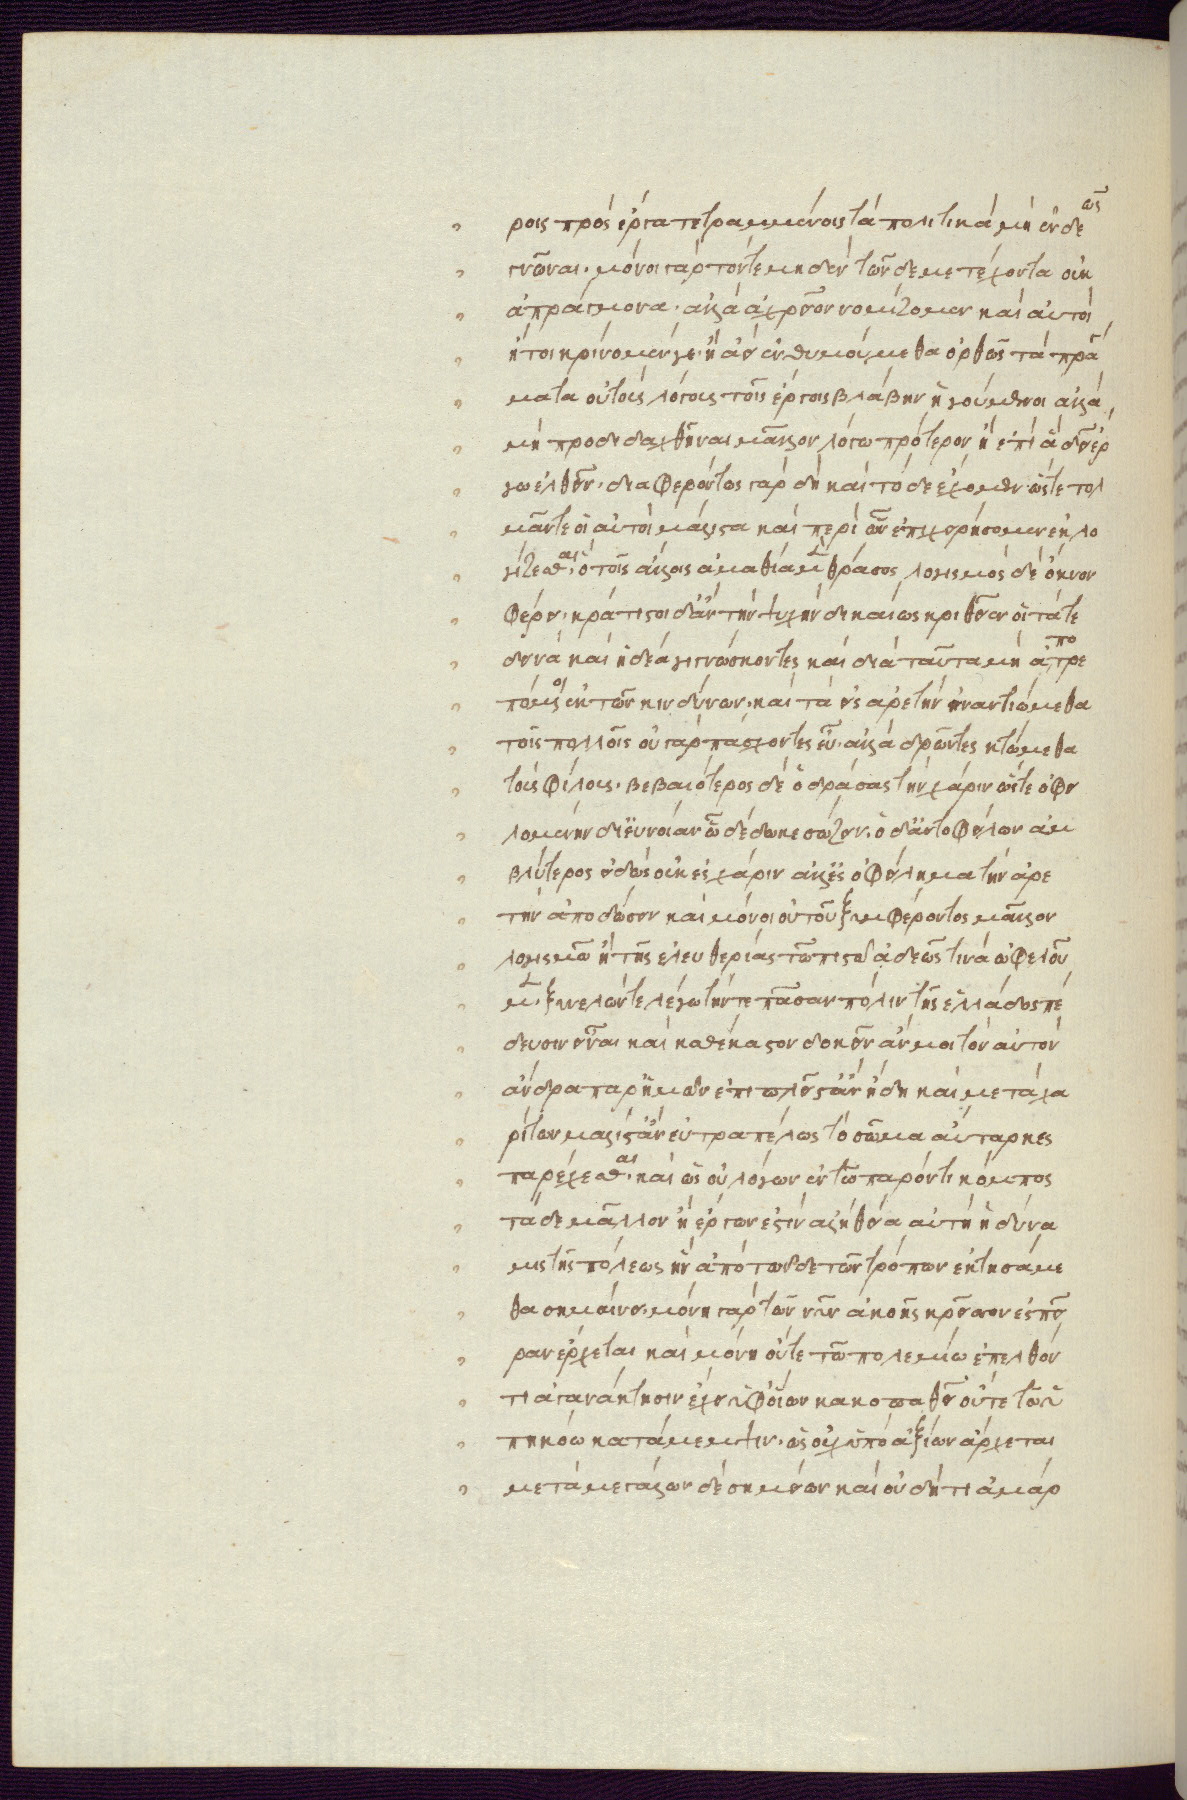 ροις πρὸς ἔργα τετραμμένοις τὰ πολιτικὰ μὴ ἐνδεῶς
γνῶναι· μόνοι γὰρ τόν τε μηδὲν τῶνδε μετέχοντα οὐκ
ἀπράγμονα· ἀλλὰ ἀχρεῖον νομίζομεν καὶ αὐτοὶ
ἤτοι κρίνομέν γε· ἢ ἀν ἐνθυμούμεθα ὀρθῶς τὰ πράγ
ματα οὐ τοὺς λόγους τοῖς ἔργοις βλάβην ἡγούμενοι ἀλλὰ
μὴ προδιδαχθῆναι μᾶλλον λόγω πρότερον ἢ ἐπὶ ἃ δεῖ ἔρ
γω ἐλθεῖν· διαφερόντως γὰρ δὴ καὶ τόδε ἔχομεν· ὥστε τολ
μᾶν τε οἱ αὐτοὶ μάλιστα καὶ περὶ ὧν ἐπιχειρήσομεν ἐκλο
γίζεσθαι· ὃ τοῖς ἄλλοις ἀμαθία μὲν θράσος, λογισμὸς δὲ ὄκνον
φέρει· κράτιστοι δ' ἂν τὴν ψυχὴν δικαίως κριθεῖεν οἱ τά τε
δεινὰ καὶ ἡδέα γιγνώσκοντες καὶ διὰ ταῦτα μὴ ἀποτρε
πόμενοι ἐκ τῶν κινδύνων· καὶ τὰ ἐς ἀρετὴν ἐναντιώμεθα
τοῖς πολλοῖς οὐ γὰρ πάσχοντες εὖ· ἀλλὰ δρῶντες κτώμεθα
τοὺς φίλους· βεβαιότερος δὲ ὁ δράσας τὴν χάριν ὥστε ὀφει
λομένην δι' εὐνοίαν ὧ δέδωκε σώζειν· ὁ δ' ἀντοφείλων ἀμ
βλύτερος εἰδὼς οὐκ ἐς χάριν ἀλλ' ἐς ὀφείλημα τὴν ἀρε
τὴν ἀποδώσων καὶ μόνοι οὐ τοῦ ξυμφέροντος μᾶλλον
λογισμῶ ἢ τῆς ἐλευθερίας τῶ πιστῶ ἀδεῶς τινὰ ὠφελοῦ
μεν· ξυνελών τε λέγω τήν τε πᾶσαν πόλιν τῆς ἑλλάδος πέ
δευσιν εἶναι καὶ καθέκαστον δοκεῖν ἄν μοι τὸν αὐτὸν
ἄνδρα παρ' ἡμῶν ἐπι πλεῖστ' ἂν ἤδη καὶ μετὰ χα
ρίτων μάλιστ' ἂν εὐτραπέλως τὸ σῶμα αὔταρκες
παρέχεσθαι· καὶ ὡς οὐ λόγων ἐν τῶ παρόντι κόμπος
τάδε μᾶλλον ἢ ἔργων ἐστὶν ἀλήθεια αὐτὴ ἡ δύνα
μις τῆς πόλεως ἣν ἀπὸ τῶνδε τῶν τρόπων ἐκτησάμε
θα σημαίνει· μόνη γὰρ τῶν νῦν ἀκοῆς κρείσσων ἐς πεῖ
ραν ἔρχεται καὶ μόνη οὔτε τῶ πολεμίω ἐπελθόν
τι ἀγανάκτησιν ἔχει ὑφ' οἵων κακοπαθεῖ οὔτε τῶ ὑ
πηκόω κατάμεμψιν· ὡς οὐχ ὑπὸ ἀξίων ἄρχεται
μετὰ μεγάλων δὲ σημείων καὶ οὐ δή τι ἀμάρ